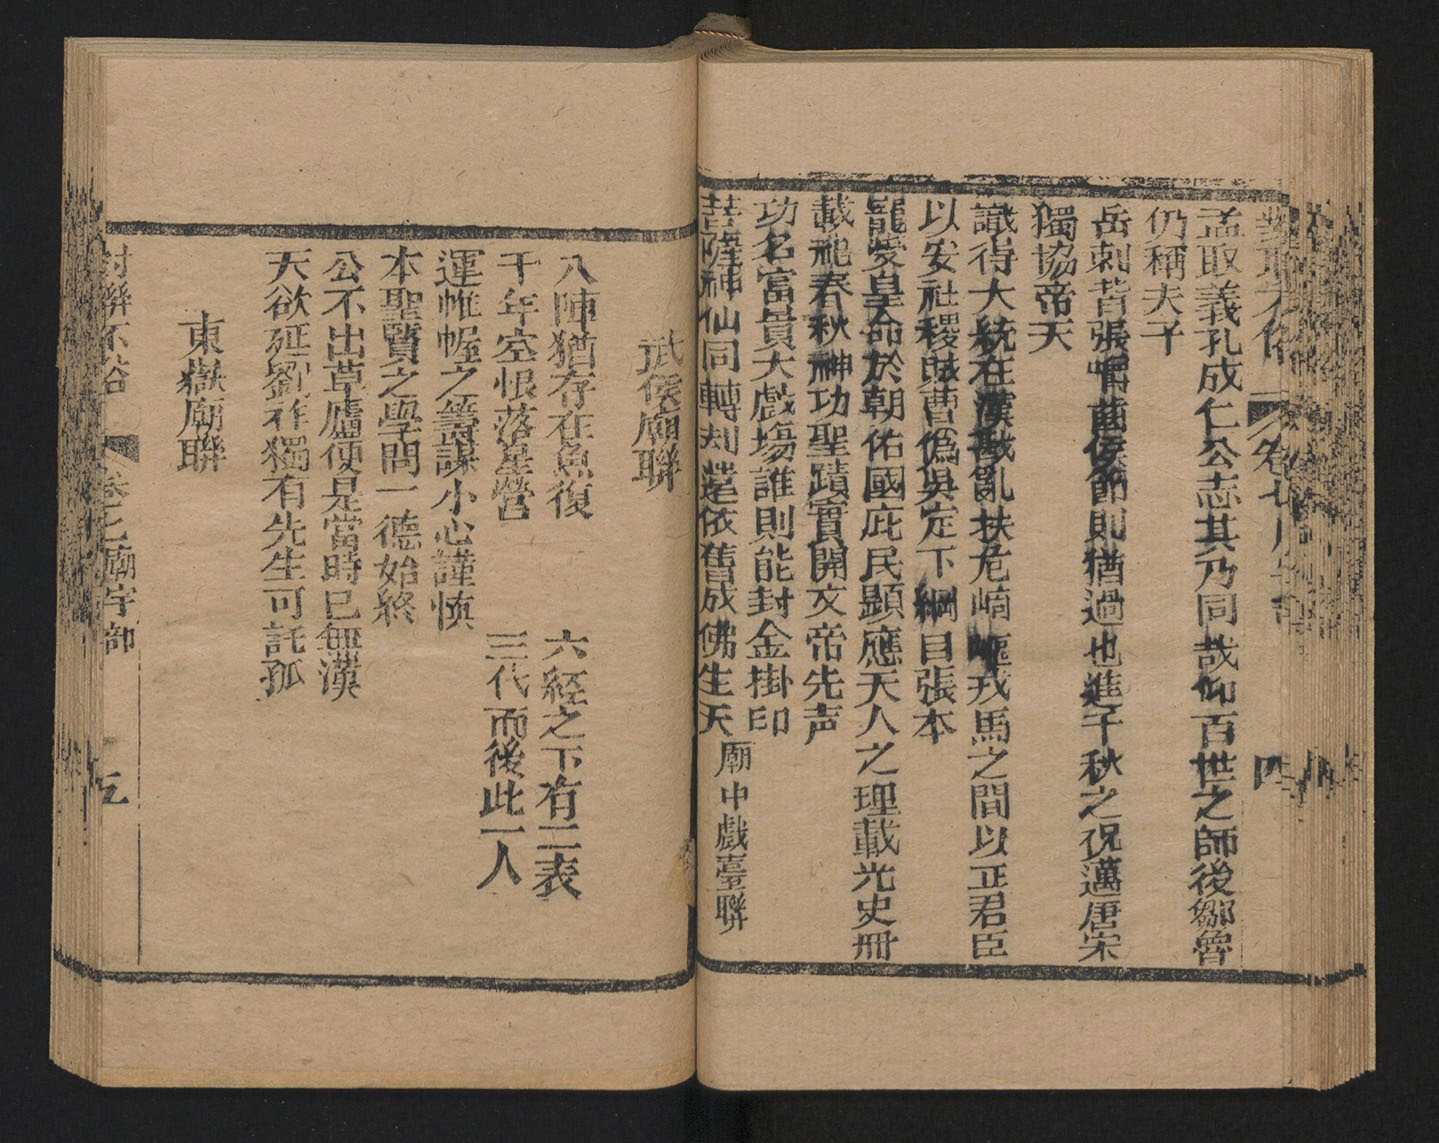 孟取義孔成仁公志其乃同哉仰百世之師後鄒魯
仍稱夫子
岳刺背張嚼齒侯節則猶過也進千秋之祝邁唐宋
獨協帝天
識得大統在漢戡亂扶危崎嶇戎馬之間以正君臣
以安社稷賊曹偽吳定下綱目張本
寵愛皇命於朝佑國庇民顯應天人之理載光史冊
載祀春秋神功聖蹟實開文帝先声
功名富貴大戲場誰則能封金掛印
菩薩神仙同轉劫還依舊成佛生天 廟中戲臺聯
武侯廟聯
八陣猶存在魚復 六經之下有二表
千年空恨落星營 三代而後此一人
運帷幄之籌謀小心謹慎
本聖賢之學問一德始終
公不出草廬便是當時已無漢
天欲延劉祚獨有先生可託孤
東嶽廟聯
對聯不俗 卷七廟宇部 五